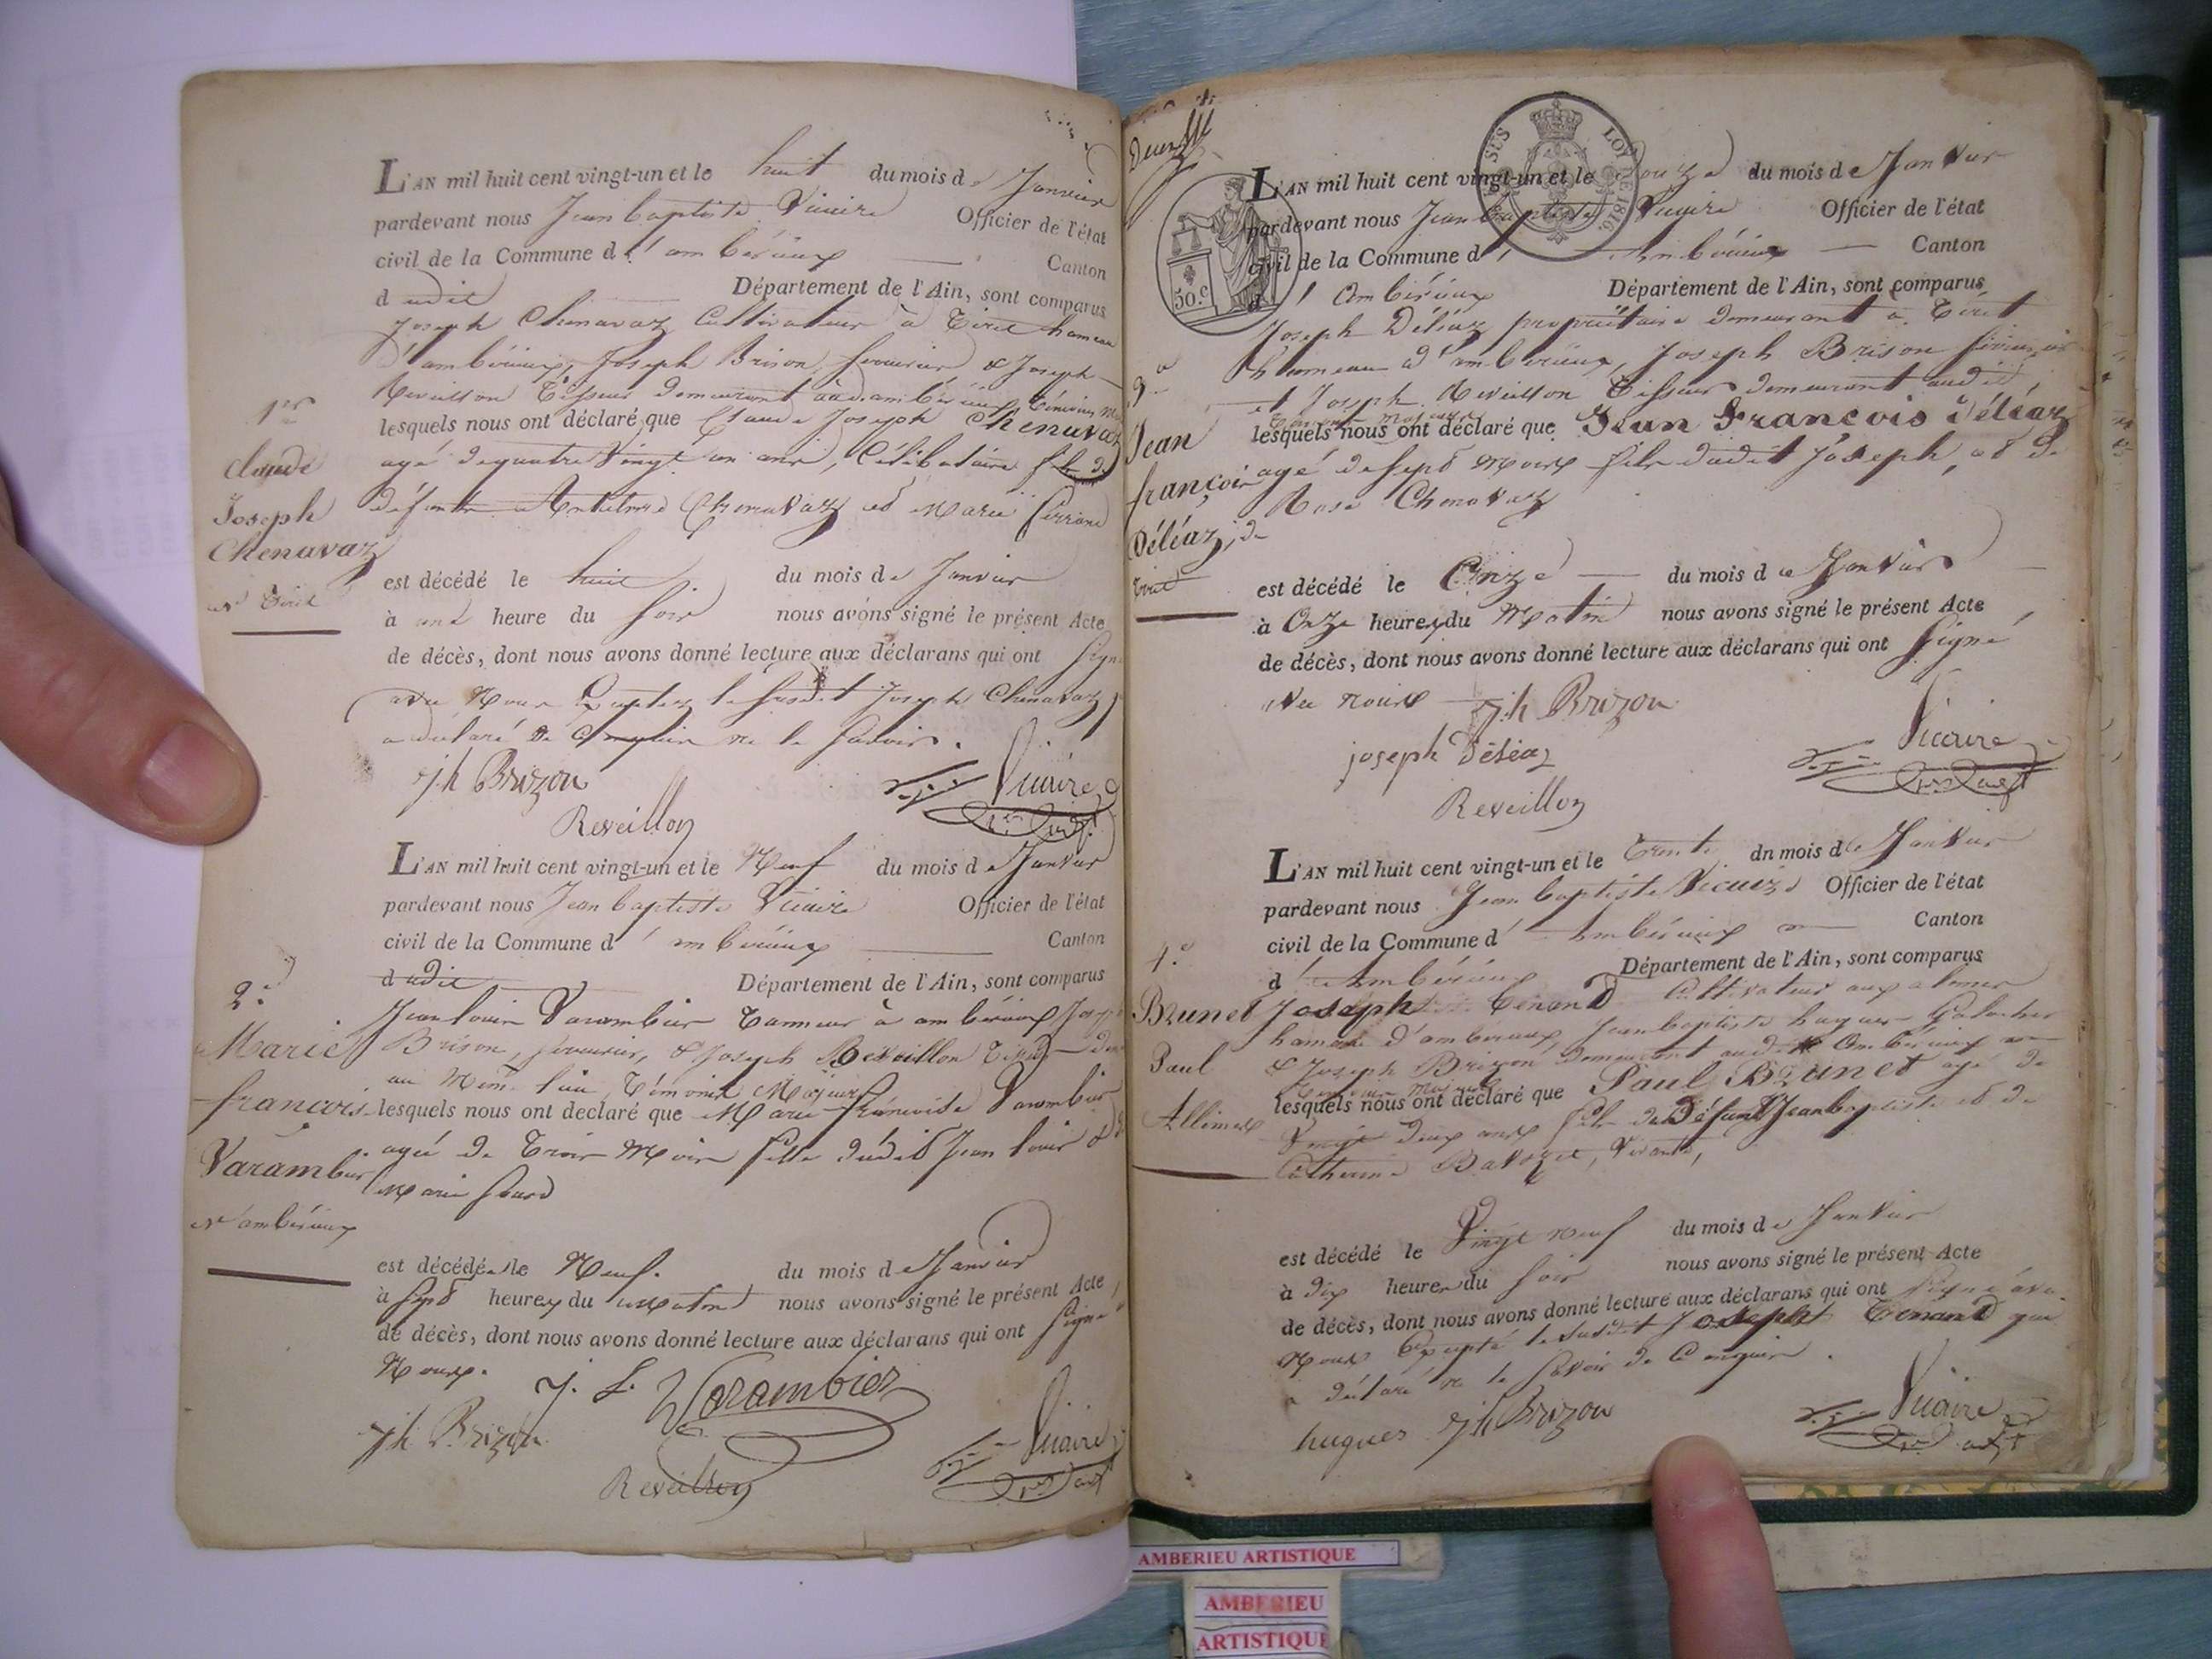 L'AN mil huit cent vingt-un et le huit du mois de Janvier
pardevant nous Jean baptiste Vicaire Officier de l'état
civil de la Commune d'ambérieux Canton
dudit Département de l'Ain, sont comparus
Joseph Chenavaz Cultivateur à Tiret hameau
d'ambérieux, Joseph Brison, serrurier, & Joseph
Reveillon Tisseur demeurant audit ambérieux, témoins
lesquels nous ont déclaré que Claude Joseph Chenavaz
agé de quatre vingt un ans, Célibataire fils de
défunts Antelme Chenavaz et Marie
est décédé le huit du mois de Janvier
à une heure du soir nous avons signé le présent Acte
de décès, dont nous avons donné lecture aux déclarans qui ont signé
avec Nous Excepté le susdit Joseph Chenavaz
a déclaré de enquis ne le savoir.
Jh Brizon Vicaire
Reveillon
1er
Claude
Joseph
Chenavaz
de Tiret
L'AN mil huit cent vingt-un et le Neuf du mois de Janvier
pardevant nous Jean baptiste Vicaire Officier de l'état
civil de la Commune d'ambérieux Canton
dudit Département de l'Ain, sont comparus
Jean louis Varambier Tanneur à ambérieux Joseph
Brison, serrurier, & Joseph Reveillon Tisseur
au même lieu, Témoins Majeurs
lesquels nous ont declaré que Marie françoise Varambier
agée de Trois Mois fille dudit Jean louis &
Marie
est décédée le Neuf. du mois de Janvier
à sept heures du matin nous avons signé le présent Acte
de décès, dont nous avons donné lecture aux déclarans qui ont signé
Nous.
J. L. Varambier
Jh Brizon Vicaire
Reveillon
2e
Marie
françoise
Varambier
d'ambérieux
SUS LOI DE 1816.
50.c
L'AN mil huit cent vingt-un et le douze du mois de Janvier
pardevant nous Jean baptiste Vicaire Officier de l'état
civil de la Commune d'Ambérieux Canton
d'Ambérieux Département de l'Ain, sont comparus
Joseph Déléaz propriétaire demeurant à Tiret
hameau d'ambérieux, Joseph Brison serrurier
et Joseph Reveillon Tisseur demeurant audit,
témoins majeurs
lesquels nous ont déclaré que Jean François Déléaz
agé de sept mois fils dudit Joseph, et de
Rose Chenavaz
est décédé le Onze du mois de Janvier
à Onze heures du Matin nous avons signé le présent Acte
de décès, dont nous avons donné lecture aux déclarans qui ont signé
avec nous Jh Brizon
joseph Déléaz Vicaire
Reveillon
3e
Jean
françois
Déléaz, de
Tiret
L'AN mil huit cent vingt-un et le Trente dn mois de Janvier
pardevant nous Jean baptiste Vicaire Officier de l'état
civil de la Commune d'Ambérieux Canton
d'Ambérieux Département de l'Ain, sont comparus
Joseph Tenand Cultivateur aux alimes
hameau d'ambérieux, Jean baptiste hugues
& Joseph Brizon demeurant audit Ambérieux
Témoins Majeurs
lesquels nous ont déclaré que Paul Brunet agé de
Vingt deux ans fils de Défunt Jean baptiste et de
Catherine, vivante,
est décédé le Vingt neuf du mois de Janvier
à dix heures du soir nous avons signé le présent Acte
de décès, dont nous avons donné lecture aux déclarans qui ont signé avec
Nous Excepté le susdit Joseph Tenand qui
a déclaré ne le savoir de enquis.
hugues Jh Brizon Vicaire
4e
Brunet
Paul
Allimes
AMBERIEU ARTISTIQUE
AMBERIEU
ARTISTIQUE